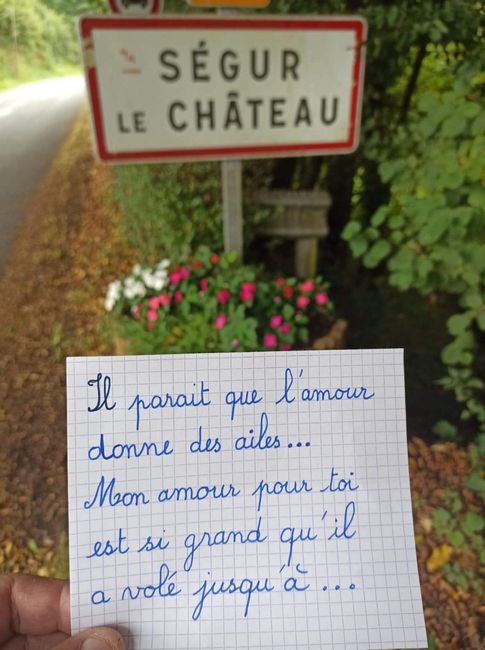 SÉGUR
LE CHÂTEAU
Il parait que l'amour
donne des ailes...
Mon amour pour toi
est si grand qu'il
a volé jusqu'à ...